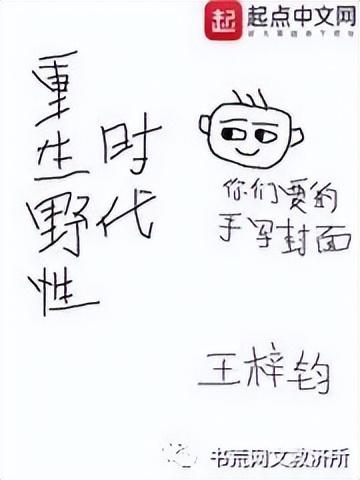 起 起点中文网
重生野性
时代
你们要的
手写封面
王梓钧
书荒网文救济所